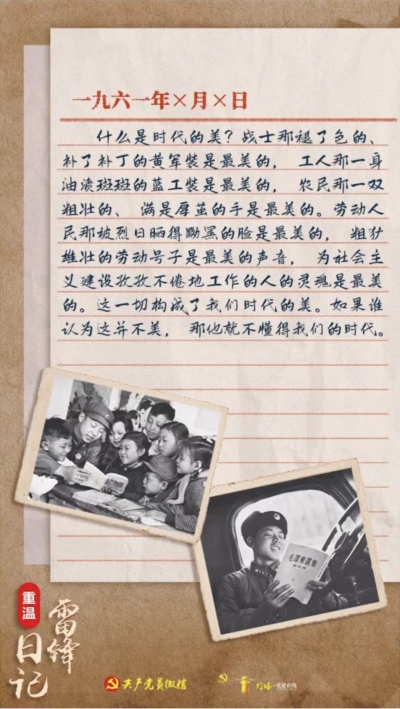 一九六一年×月×日
什么是时代的美？战士那褪了色的、
补了补丁的黄军装是最美的，工人那一身
油渍斑斑的蓝工装是最美的，农民那一双
粗壮的、满是厚茧的手是最美的。劳动人
民那被烈日晒得黝黑的脸是最美的，粗犷
雄壮的劳动号子是最美的声音，为社会主
义建设孜孜不倦地工作的人的灵魂是最美
的。这一切构成了我们时代的美。如果谁
认为这并不美，那他就不懂得我们的时代。
毛泽东选集
重温
雷锋
日记
共产党员微信